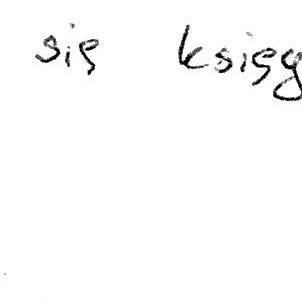 się księg